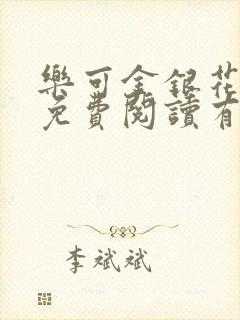 樂可金銀花
免費閱讀有
李斌斌